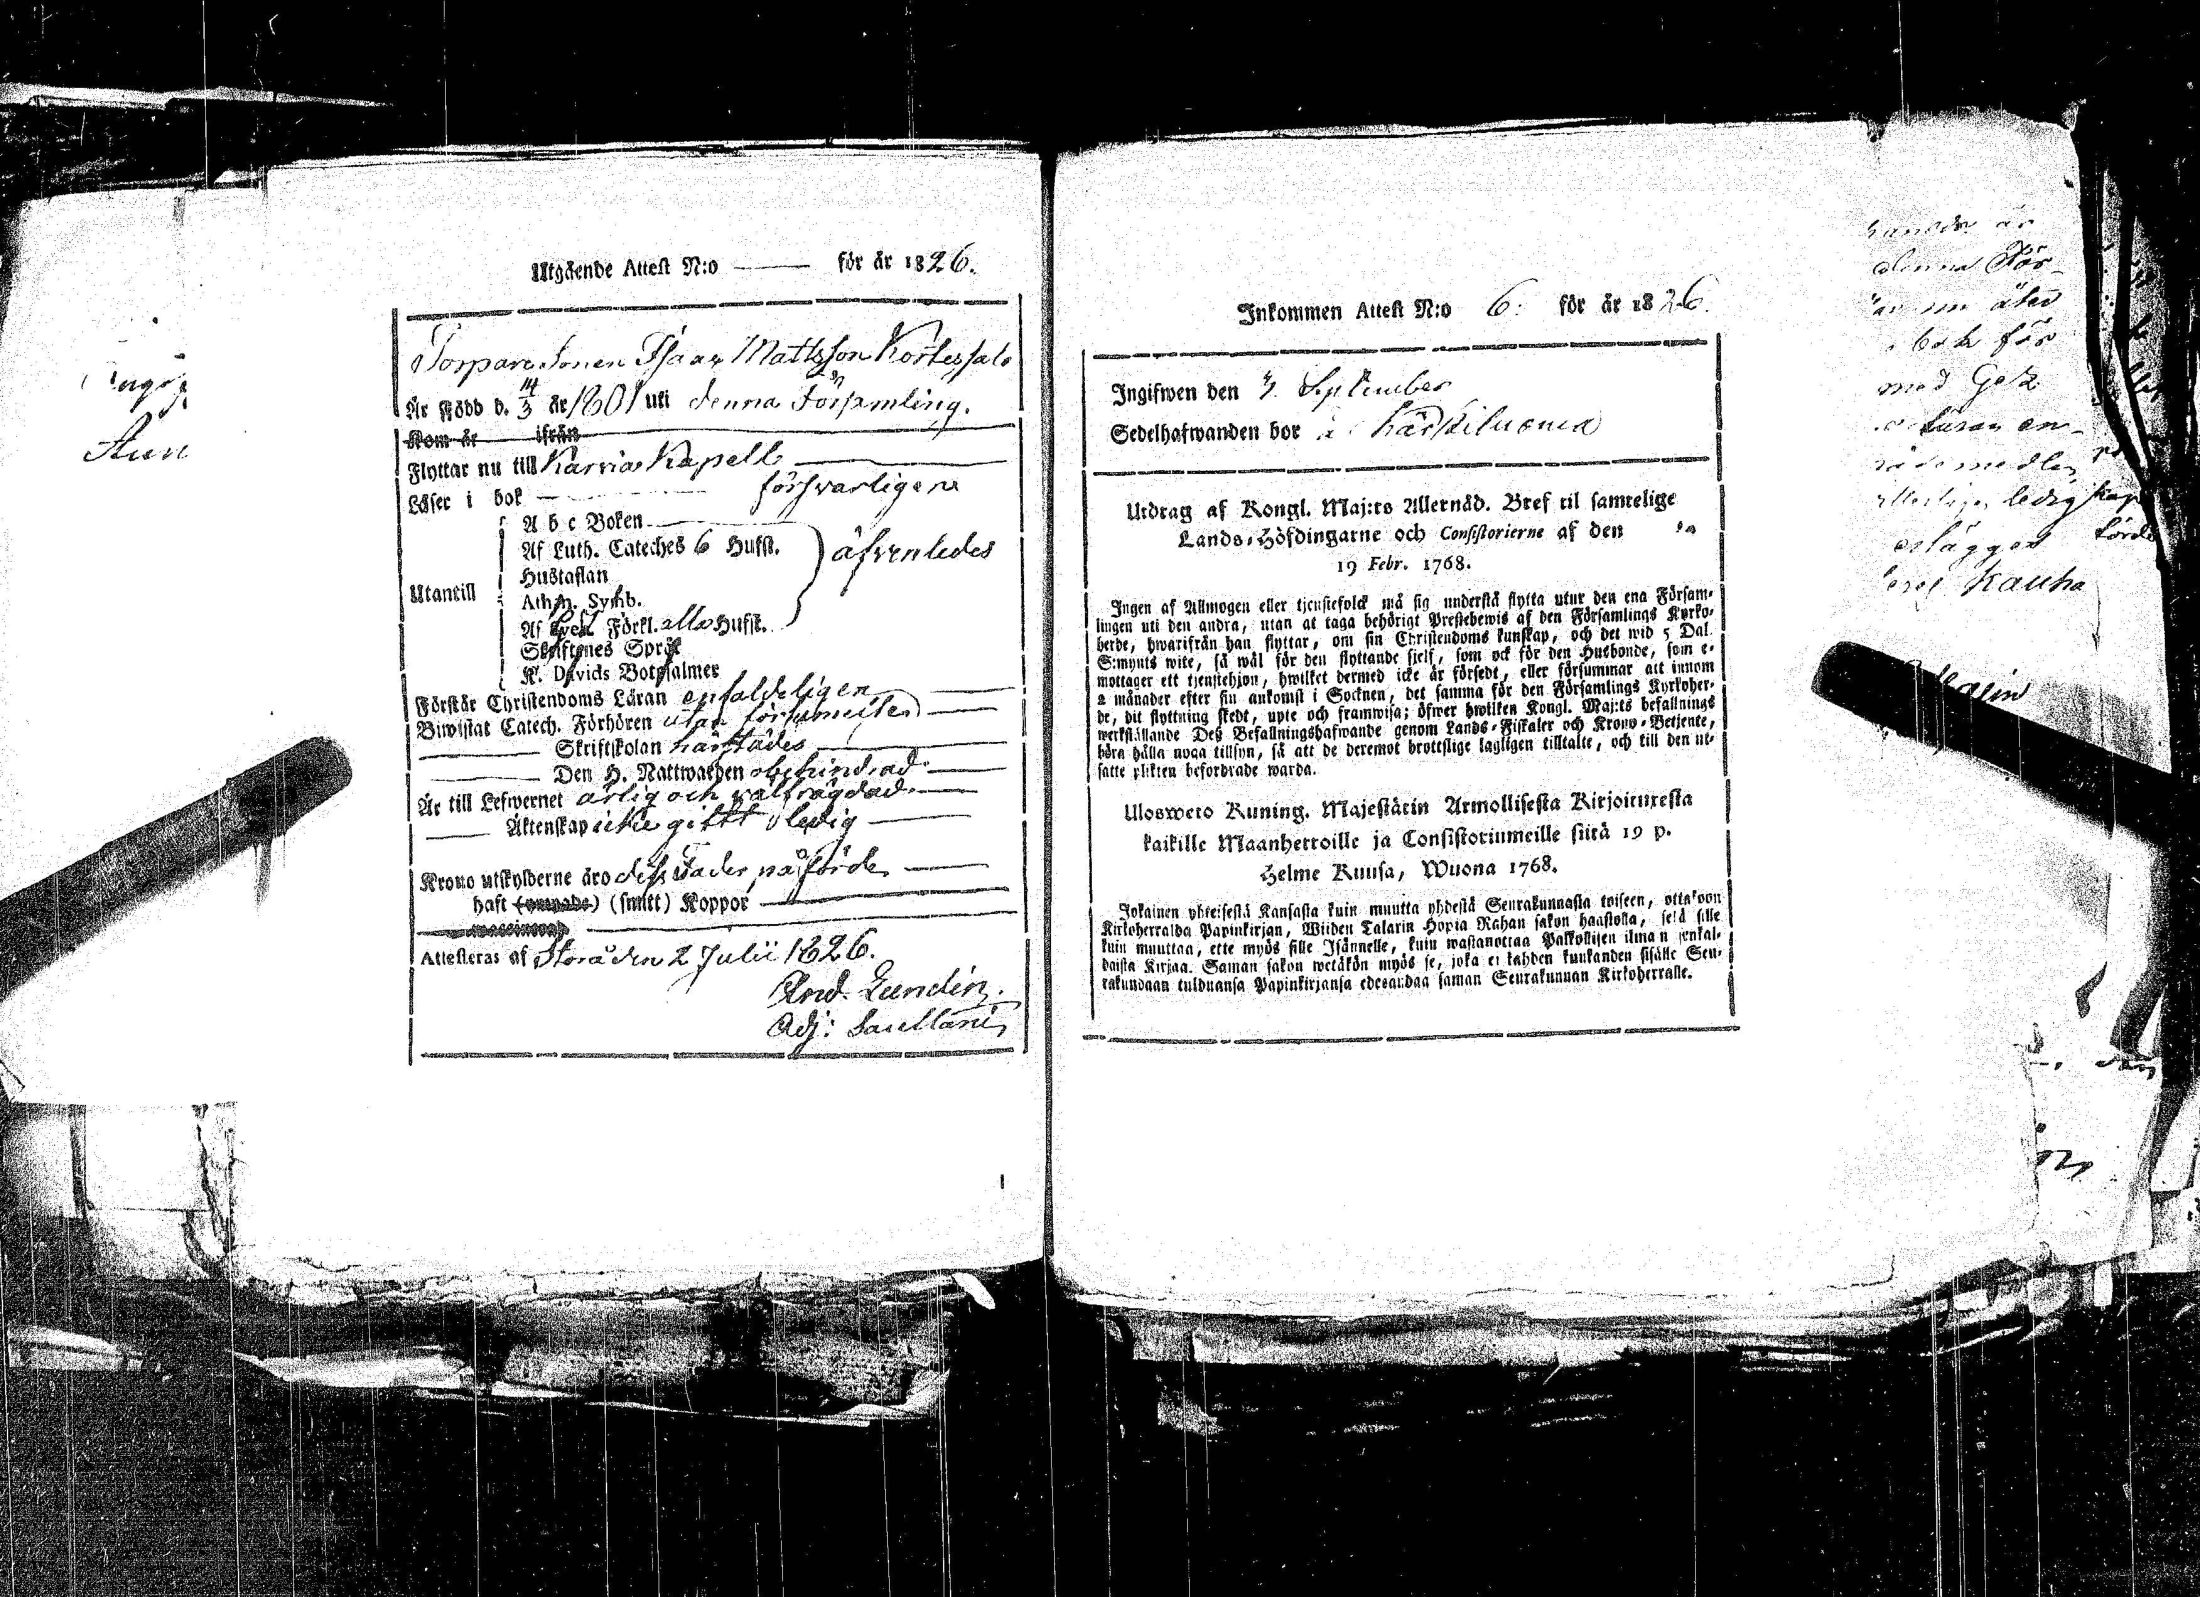 Utgående Attest N:o — för år 1826.
Torpare Sonen Isaac Mattsson Kortessalo
Är född d. 14/3 år 1801 uti denna Församling.
Kom år ifrån
Flyttar nu till Karvia Kapell
Läser i bok — försvarligen
A b c Boken
Af Luth. Cateches 6 Hufst. äfvenledes
Hustaflan
Utantill
Athan. Symb.
Af Sveb. Förkl. alla Hufst.
Skriftenes Språk
K. Davids Botpsalmer
Förstår Christendoms Läran enfaldeligen
Biwistat Catech. Förhören utan försummelse
Skriftskolan härstädes
Den H. Nattwarden obehindrad
Är till Lefwernet ärlig och välfrägdad
Äktenskap icke gift ledig
Krono utskylderne äro dess Fader påförde
haft (smitt) Koppor
Attesteras af Storå den 2 Julii 1826.
And. Lundin.
Adj:
Inkommen Attest N:o 6: för år 1826.
Ingifwen den 3 September
Sedelhafwanden bor i Kärkiluoma
Utdrag af Kongl. Maj:ts Allernåd. Bref til samtelige
Lands-Höfdingarne och Consistorierne af den
19 Febr. 1768.
Ingen af Allmogen eller tjenstefolck må sig understå flytta utur den ena Försam-
lingen uti den andra, utan at taga behörigt Prestebewis af den Församlings Kyrko-
herde, hwarifrån han flyttar, om sin Christendoms kunskap, och det wid 5 Dal.
S:mynts wite, så wäl för den flyttande sjelf, som ock för den Husbonde, som e-
mottager ett tjenstehjon, hwilket dermed icke är försedt, eller försummar att innom
2 månader efter sin ankomst i Socknen, det samma för den Församlings Kyrkoher-
de, dit flyttning skedt, upte och framwisa; öfwer hwilken Kongl. Maj:ts befallnings
werkställande Deß Befallningshafwande genom Lands-Fiskaler och Krono-Betjente,
böra hålla noga tillsyn, så att de deremot brottslige lagligen tilltalte, och till den ut-
satte plikten befordrade warda.
Ulosweto Kuning. Majestätin Armollisesta Kirjoituxesta
kaikille Maanherroille ja Consistoriumeille siitä 19 p.
Helme Kuusa, Wuona 1768.
Jokainen yhteisestä Kansasta kuin muutta yhdestä Seurakunnasta toiseen, ottakoon
Kirkoherralda Papinkirjan, Wiiden Talarin Hopia Rahan sakon haastolla, sekä sille
kuin muuttaa, ette myös sille Isännelle, kuin wastanottaa Palkollisen ilman senkal-
daista Kirjaa. Saman sakon wetäkön myös se, joka ei kahden kuukauden sisälle Seu-
rakundaan tulduansa Papinkirjansa edesandaa saman Seurakunnan Kirkoherralle.
denna För-
bok för
med Gez
ledig
Kauha